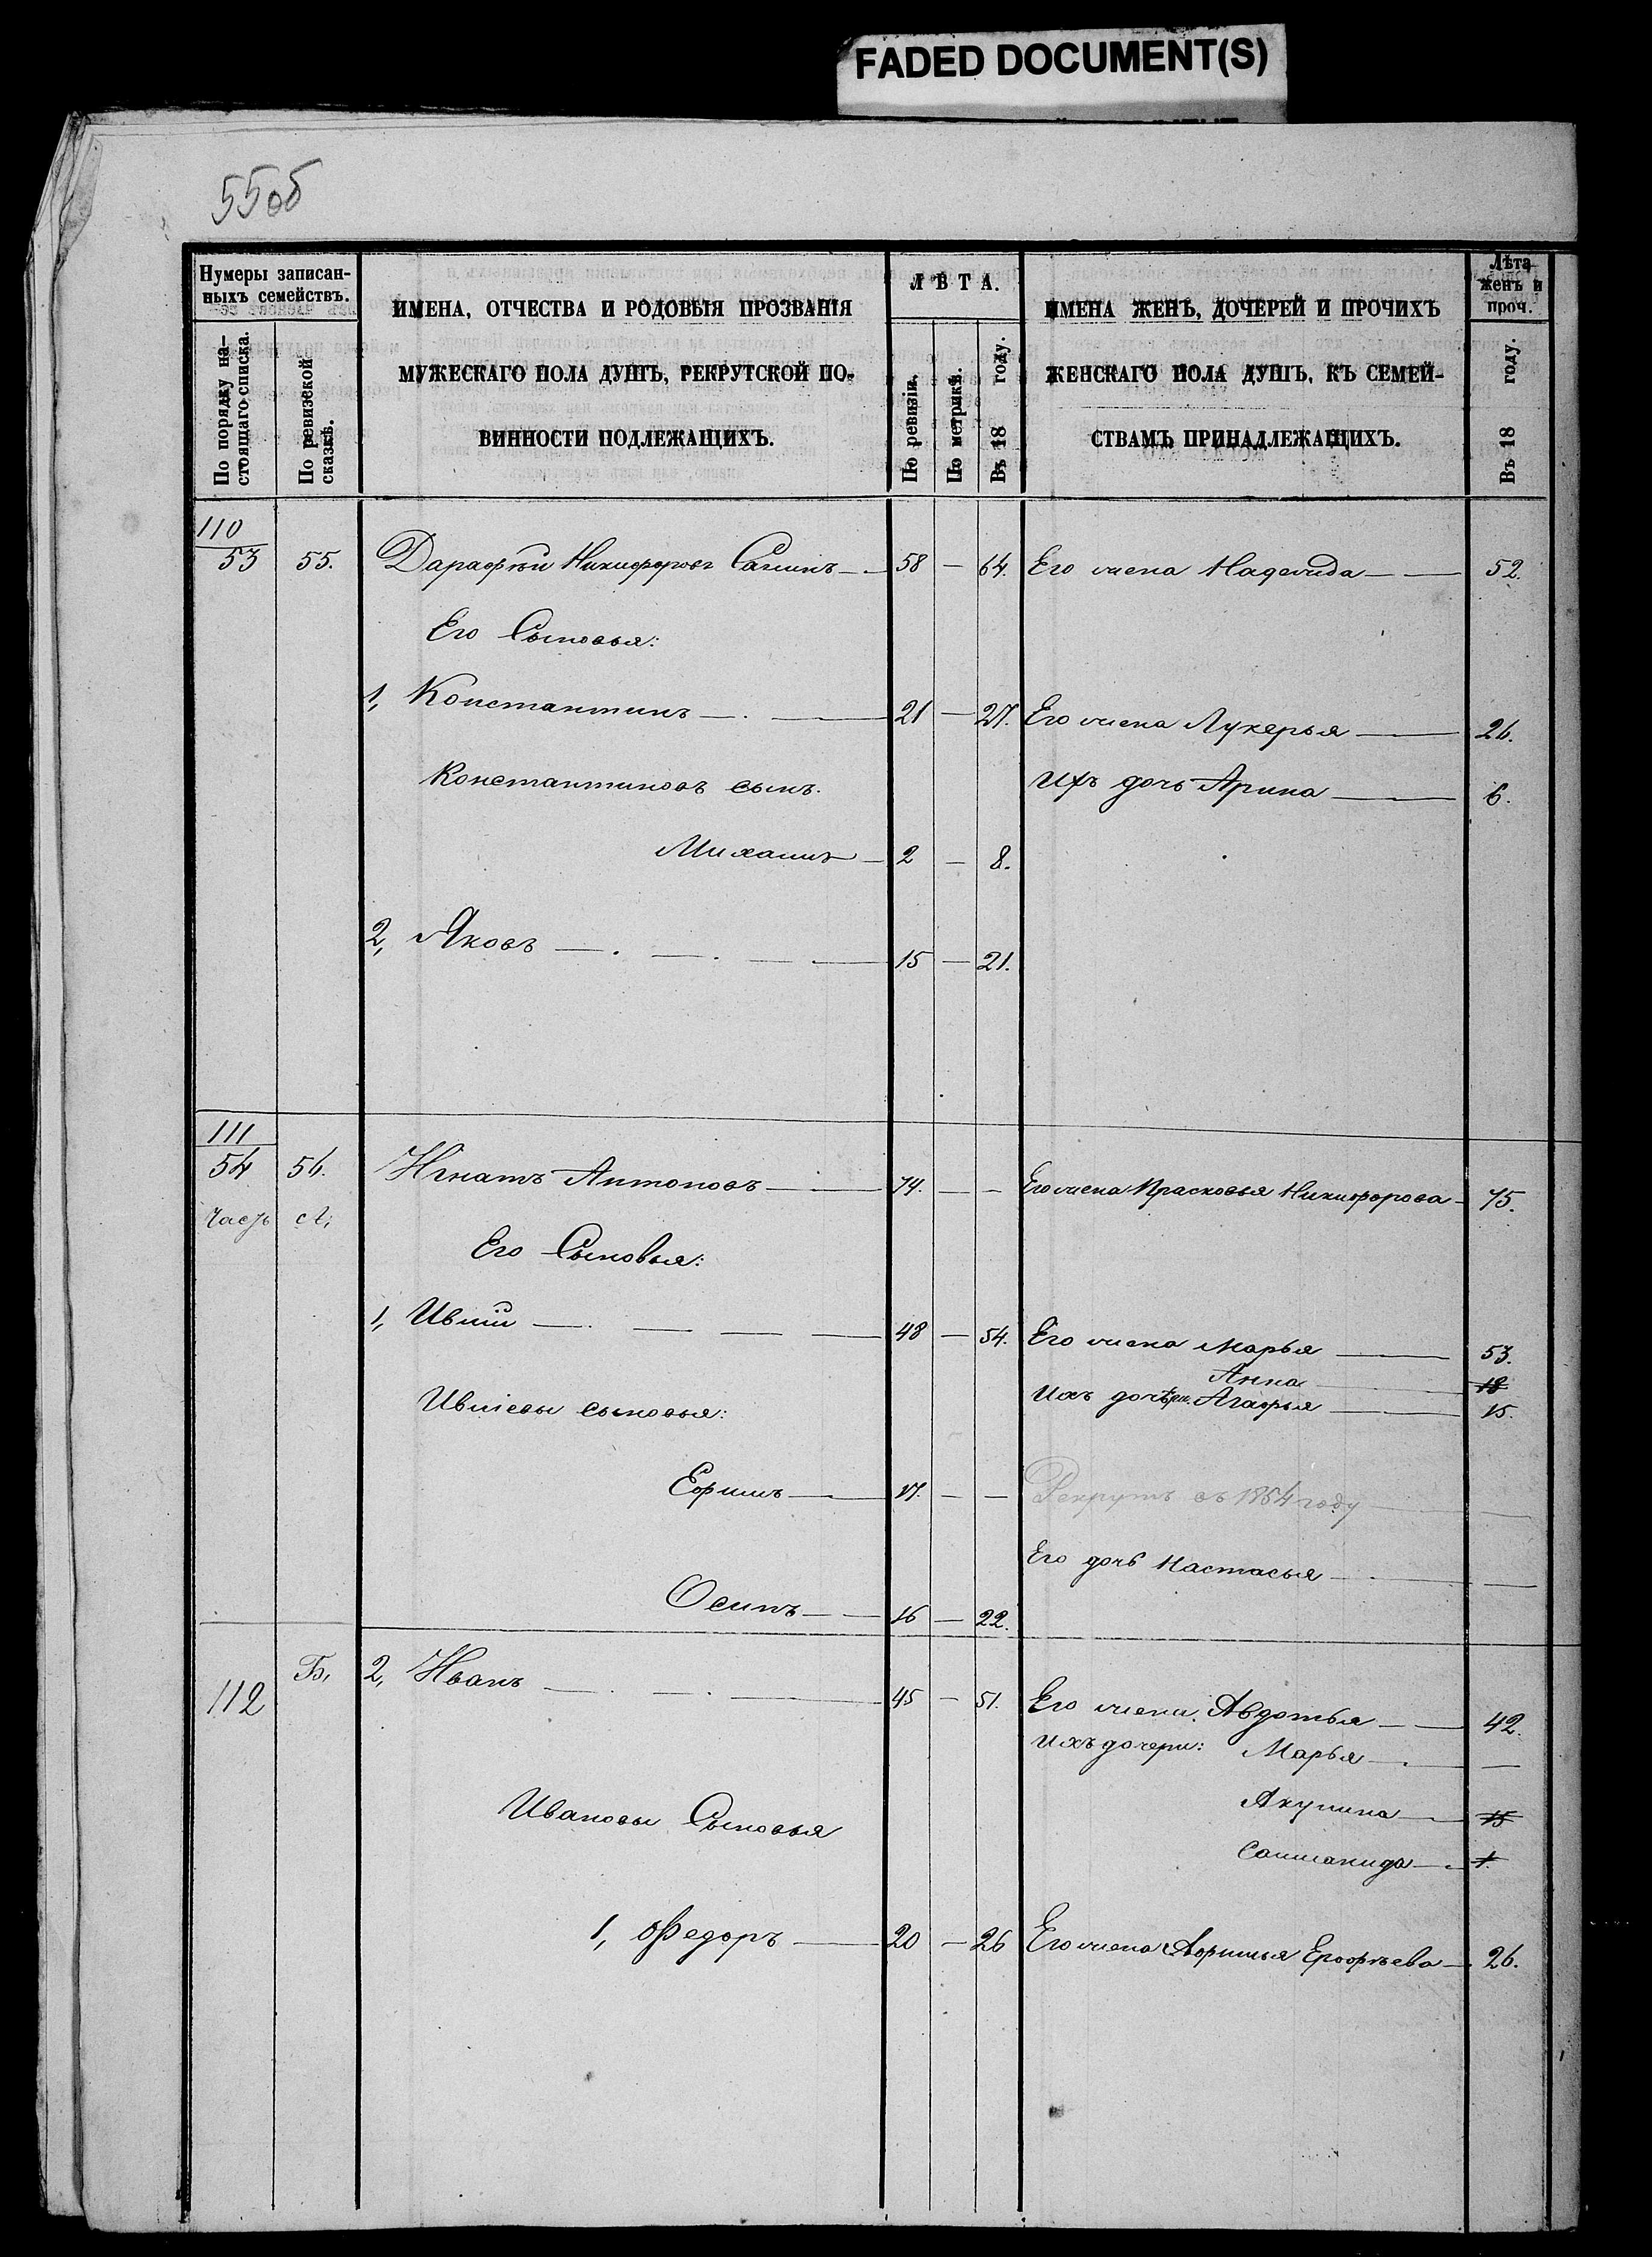 FADED DOCUMENT(S)
55об
Нумеры записан-
ныхъ семействъ.
По порядку на-
стоящаго списка.
По ревизской
сказкѣ.
ИМЕНА, ОТЧЕСТВА И РОДОВЫЯ ПРОЗВАНІЯ
МУЖЕСКАГО ПОЛА ДУШЪ, РЕКРУТСКОЙ ПО-
ВИННОСТИ ПОДЛЕЖАЩИХЪ.
ЛѢТА.
По ревизіи.
По метрикѣ.
Въ 18 году.
ИМЕНА ЖЕНЪ, ДОЧЕРЕЙ И ПРОЧИХЪ
ЖЕНСКАГО ПОЛА ДУШЪ, КЪ СЕМЕЙ-
СТВАМЪ ПРИНАДЛЕЖАЩИХЪ.
Лѣта
женъ и
проч.
Въ 18 году.
110
53 55. Дарафѣй Никифоровъ 58 — 64. Его жена Надежида — 52.
Его Сыновья:
1, Константинъ — 21 — 27. Его жена Лукерья — 26.
Константиновъ сынъ. Ихъ дочь Арина — 6.
Михаилъ — 2 — 8.
2, Яковъ — 15 — 21.
111
54 56. Игнатъ Антоновъ — 74. — — Его жена Прасковья Никифорова — 75.
Часть А;
Его Сыновья:
1, Ивлій — 48 — 54. Его жена Марья — 53.
Анна — 18
Ивліевы сыновья: Ихъ дочѣри. Агафья — 15.
Ефимъ — 17. — — Рекрутъ въ 1854 году —
Его дочь Настасья —
Осипъ — 16 — 22.
112 Б, 2, Иванъ — 45 — 51. Его жена. Авдотья — 42.
Ихъ дочери: Марья —
Ивановы Сыновья Акулина — 15
Соломанида — 1.
1, Федоръ — 20 — 26 Его жена Ерофѣева — 26.